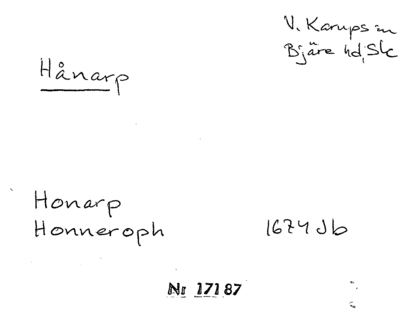 V. Karups sn
Bjäre hd, Sk
Hånarp
Honarp
Honneroph 1674 Jb
Nr 17187